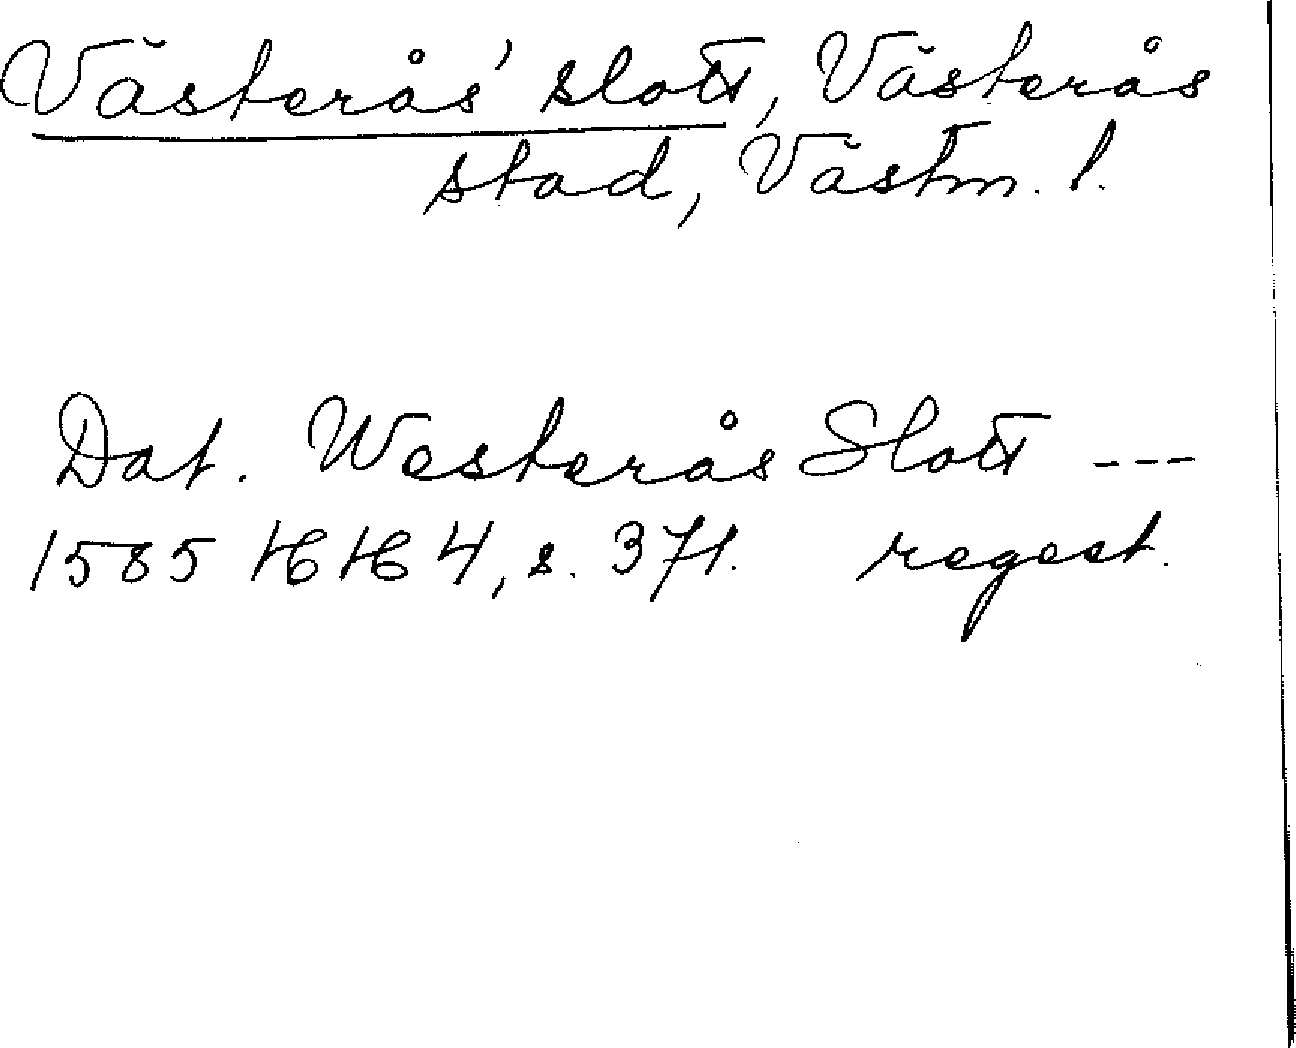 Västerås' slott, Västerås
stad, Västm. l.
Dat. Westerås Slott ---
1585 HH 4, s. 371. regest.